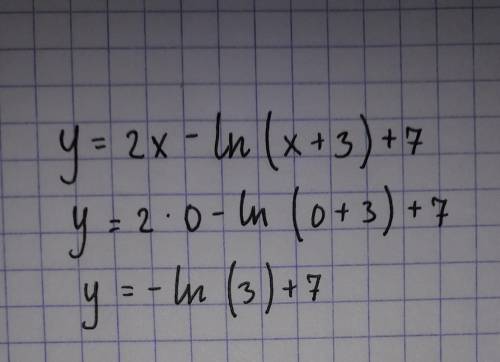 y = 2x - ln(x+3)+7
y = 2·0 - ln(0+3)+7
y = -ln(3)+7